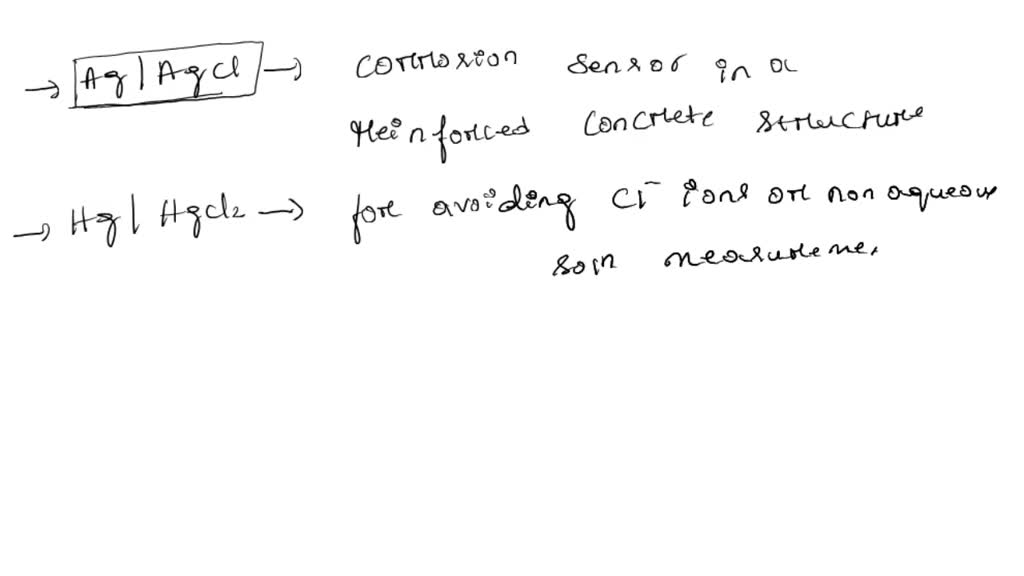 → Ag | AgCl → corrosion sensor in a
reinforced concrete structure
→ Hg | HgCl2 → for avoiding Cl⁻ ions or non aqueous
soln measureme